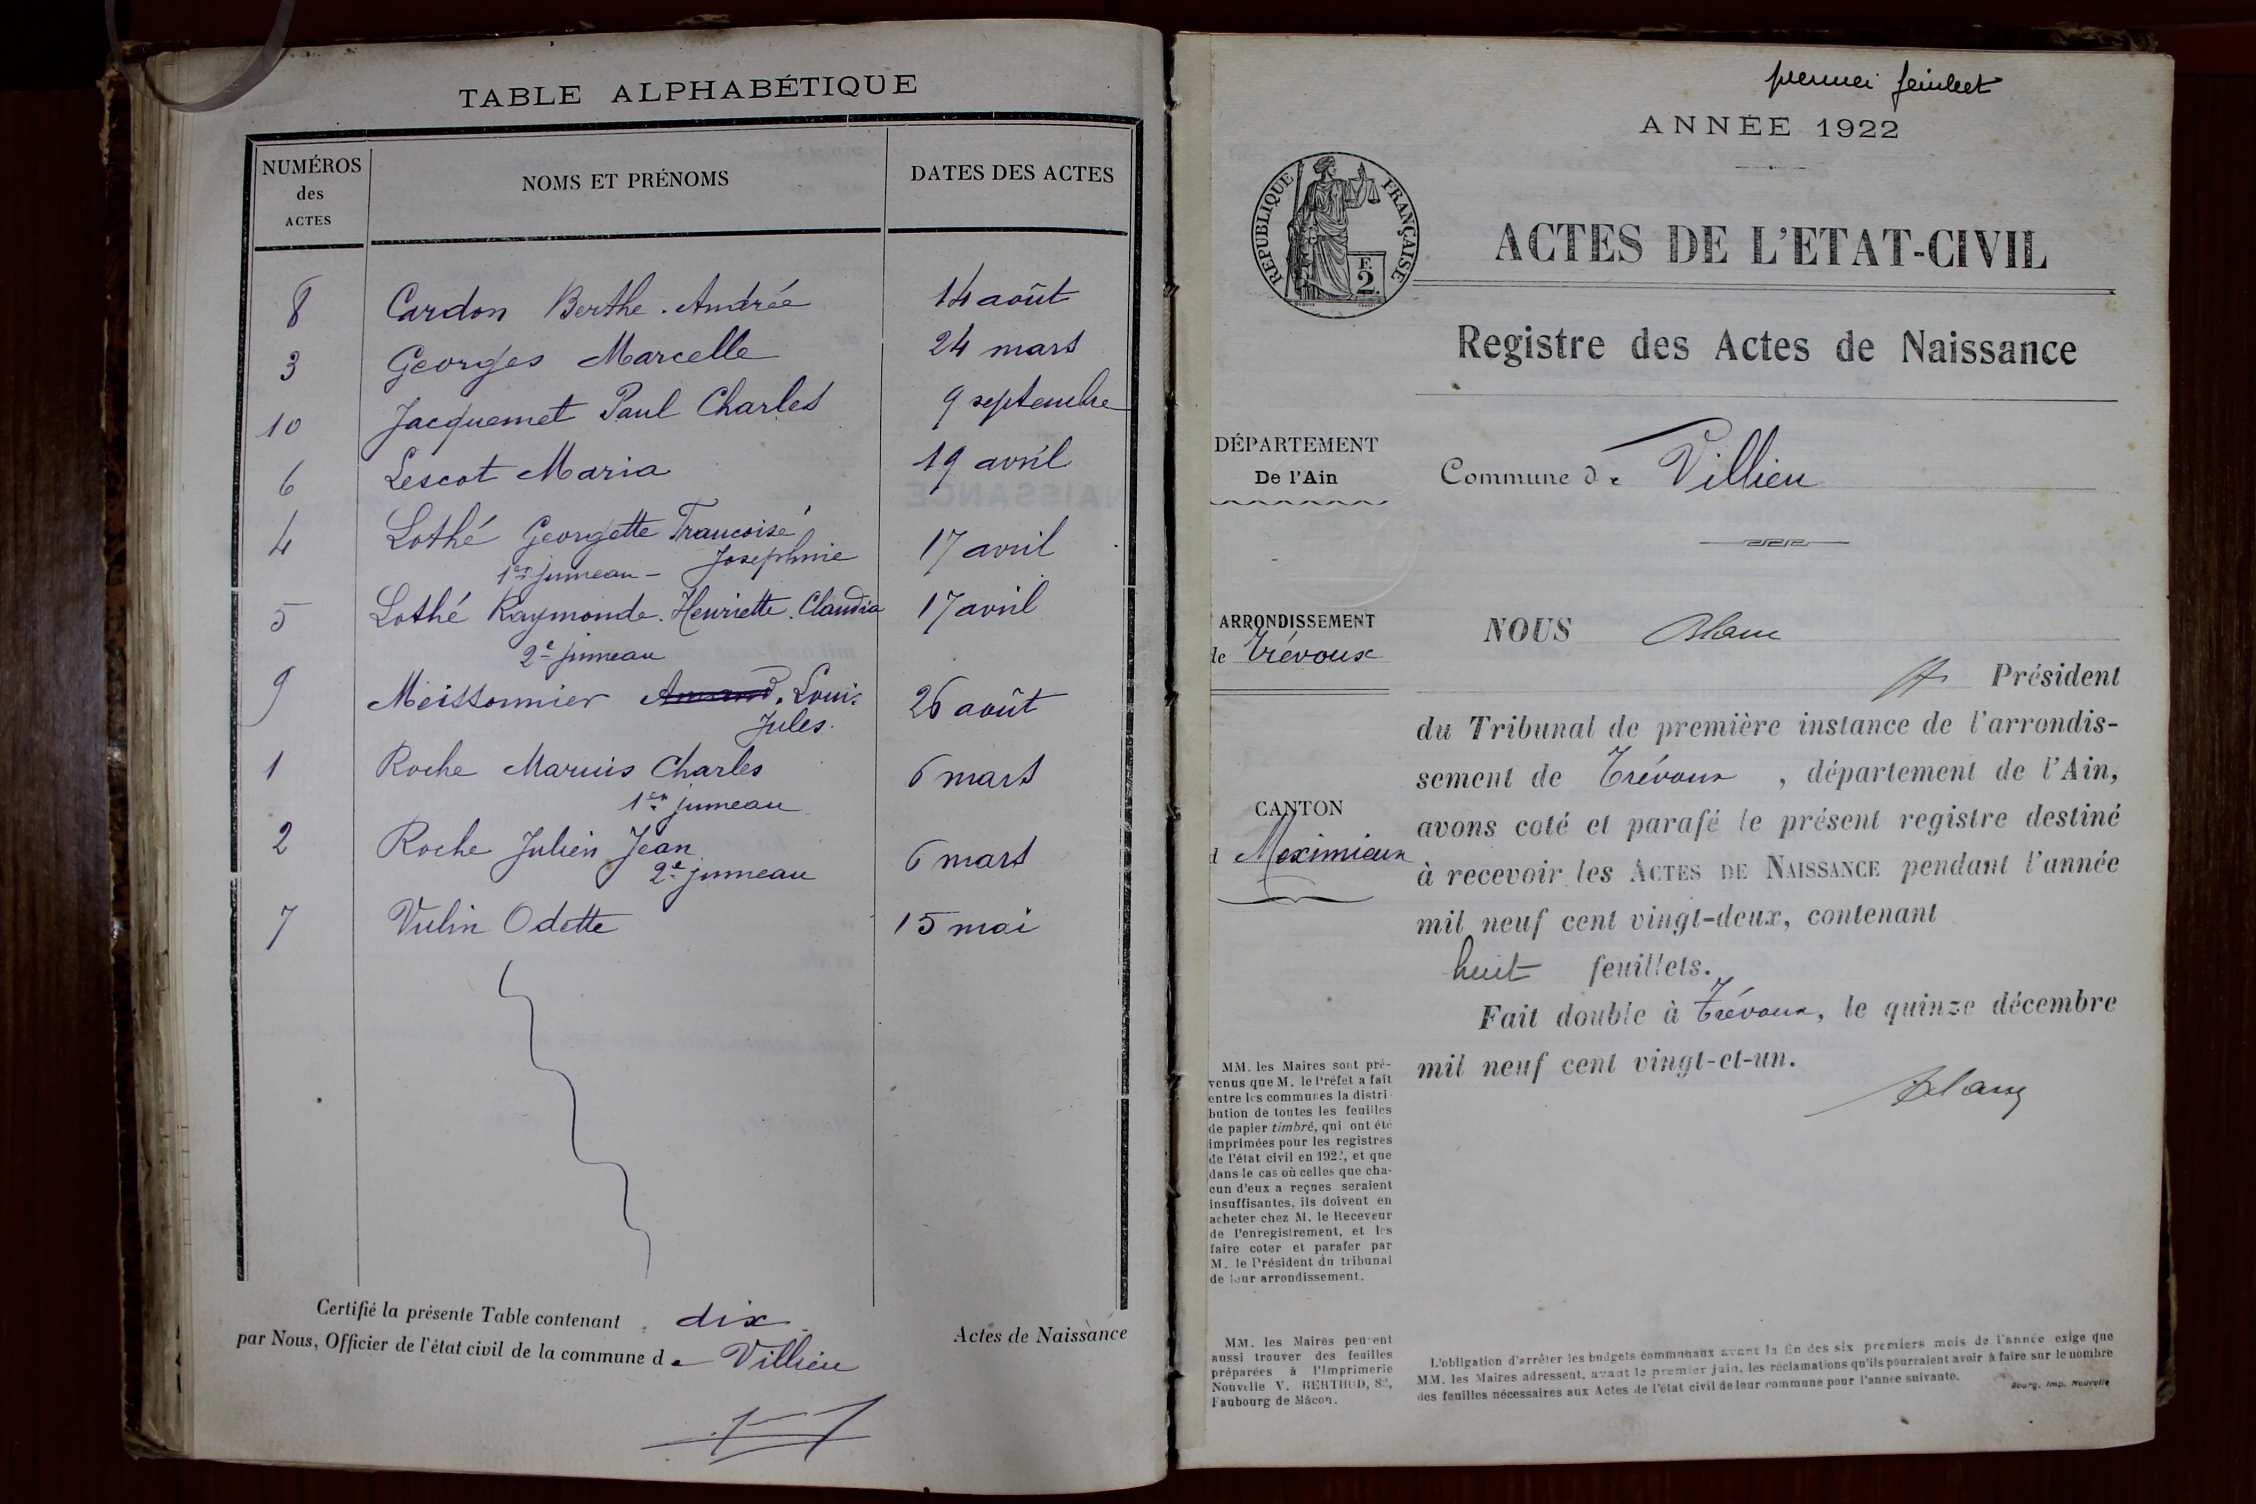 TABLE ALPHABÉTIQUE
NUMÉROS
des
ACTES
NOMS ET PRÉNOMS
DATES DES ACTES
8 Cardon Berthe. Andrée 14 août
3 Georges Marcelle 24 mars
10 Jacquemet Paul Charles 9 septembre
6 Lescot Maria 19 avril
4 Lothé Georgette Francoise 17 avril
1er jumeau - Josephine
5 Lothé Raymonde. Henriette. Claudia 17 avril
2e jumeau
9 Meissonnier Armand. Louis 26 août
Jules.
1 Roche Marius Charles 6 mars
1er jumeau
2 Roche Julien Jean 6 mars
2e jumeau
7 Vulin Odette 15 mai
Certifié la présente Table contenant dix Actes de Naissance
par Nous, Officier de l'état civil de la commune de Villieu
premier feuillet
ANNÉE 1922
RÉPUBLIQUE FRANÇAISE
F.
2.
ACTES DE L'ETAT-CIVIL
Registre des Actes de Naissance
DÉPARTEMENT
De l'Ain
Commune de Villieu
ARRONDISSEMENT
de Trévoux
CANTON
d Meximieux
NOUS Blanc
Président
du Tribunal de première instance de l'arrondis-
sement de Trévoux, département de l'Ain,
avons coté et parafé le présent registre destiné
à recevoir les ACTES DE NAISSANCE pendant l'année
mil neuf cent vingt-deux, contenant
huit feuillets.
Fait double à Trévoux, le quinze décembre
mil neuf cent vingt-et-un.
Blanc
MM. les Maires sont pré-
venus que M. le Préfet a fait
entre les communes la distri-
bution de toutes les feuilles
de papier timbré, qui ont été
imprimées pour les registres
de l'état civil en 1922, et que
dans le cas où celles que cha-
cun d'eux a reçues seraient
insuffisantes, ils doivent en
acheter chez M. le Receveur
de l'enregistrement, et les
faire coter et parafer par
M. le Président du tribunal
de leur arrondissement.
MM. les Maires peuvent
aussi trouver des feuilles
préparées à l'Imprimerie
Nouvelle V. BERTHOD,
Faubourg de Mâcon.
L'obligation d'arrêter les budgets communaux avant la fin des six premiers mois de l'année exige que
MM. les Maires adressent, avant le premier juin, les réclamations qu'ils pourraient avoir à faire sur le nombre
des feuilles nécessaires aux Actes de l'état civil de leur commune pour l'année suivante.
Bourg. Imp. Nouvelle